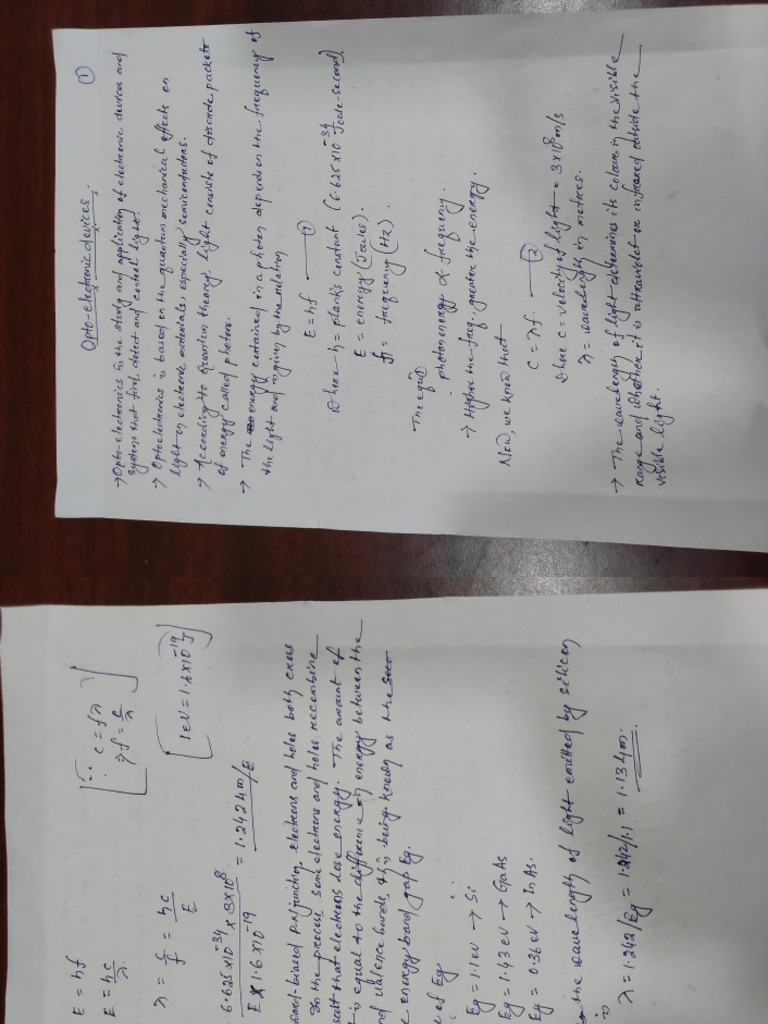 ①
Opto-electronic devices.
→ Opto-electronics is the study and application of electronic devices and
systems that find, detect and control light.
→ Optoelectronics is based on the quantum mechanical effects on
light on electronic materials, especially semiconductors.
→ According to quantum theory, light consists of discrete packets
of energy called photons.
→ The energy contained in a photon depends on the frequency of
the light and is given by the relation
E = hf —— ①
Where h = plank's constant (6.625 x 10^-34 Joule-second)
E = energy (Joules).
f = frequency (Hz).
The eqn ①
photon energy ∝ frequency.
→ Higher the freq., greater the energy.
Now, we know that
C = λf. —— ②
Where C = velocity of light = 3 x 10^8 m/s
λ = wavelength in metres.
→ The wavelength of light determines its colour in the visible
range and whether it is ultraviolet or infrared outside the
visible light.
E = hf
[∵ c = fλ
⇒ f = c/λ]
E = hc/λ
λ = c/f = hc/E
[1 eV = 1.6 x 10^-19 J]
6.625 x 10^-34 x 3 x 10^8 / E x 1.6 x 10^-19 = 1.242 µm/E
-biased p-n junction, electrons and holes both cross
In the process, some electrons and holes recombine
that electrons lose energy. The amount of
is equal to the difference in energy between the
valence bands, this being known as the
energy band gap Eg.
of Eg
Eg = 1.1 eV → Si
Eg = 1.43 eV → GaAs
Eg = 0.36 eV → InAs.
the wavelength of light emitted by silicon
λ = 1.242/Eg = 1.242/1.1 = 1.13 µm.